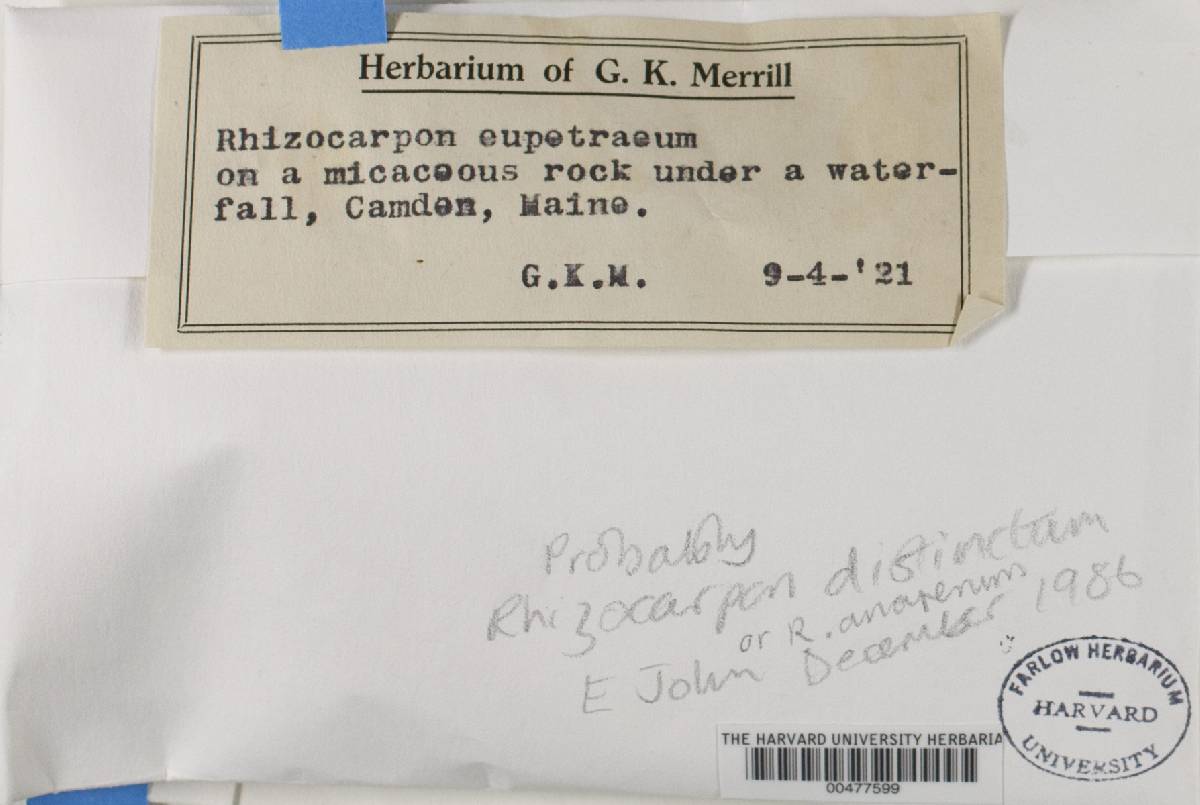 Herbarium of G. K. Merrill
Rhizocarpon eupetraeum
on a micaceous rock under a water-
fall, Camden, Maine.
G.K.M. 9-4-'21
Probably
Rhizocarpon distinctum
or R. anarenum
E John December 1986
FARLOW HERBARIUM
HARVARD
UNIVERSITY
THE HARVARD UNIVERSITY HERBARIA
00477599